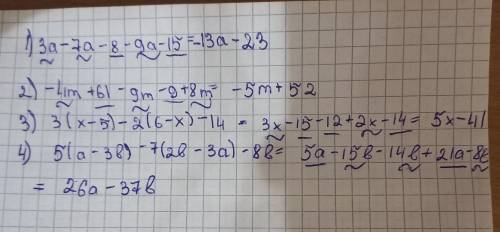 1) 3a-7a-8-9a-15=-13a-23
2) -4m+61-9m-9+8m= -5m+52
3) 3(x-5)-2(6-x)-14 = 3x-15-12+2x-14= 5x-41
4) 5(a-3в)-7(2в-3a)-8в= 5a-15в-14в+21a-8в
= 26a-37в